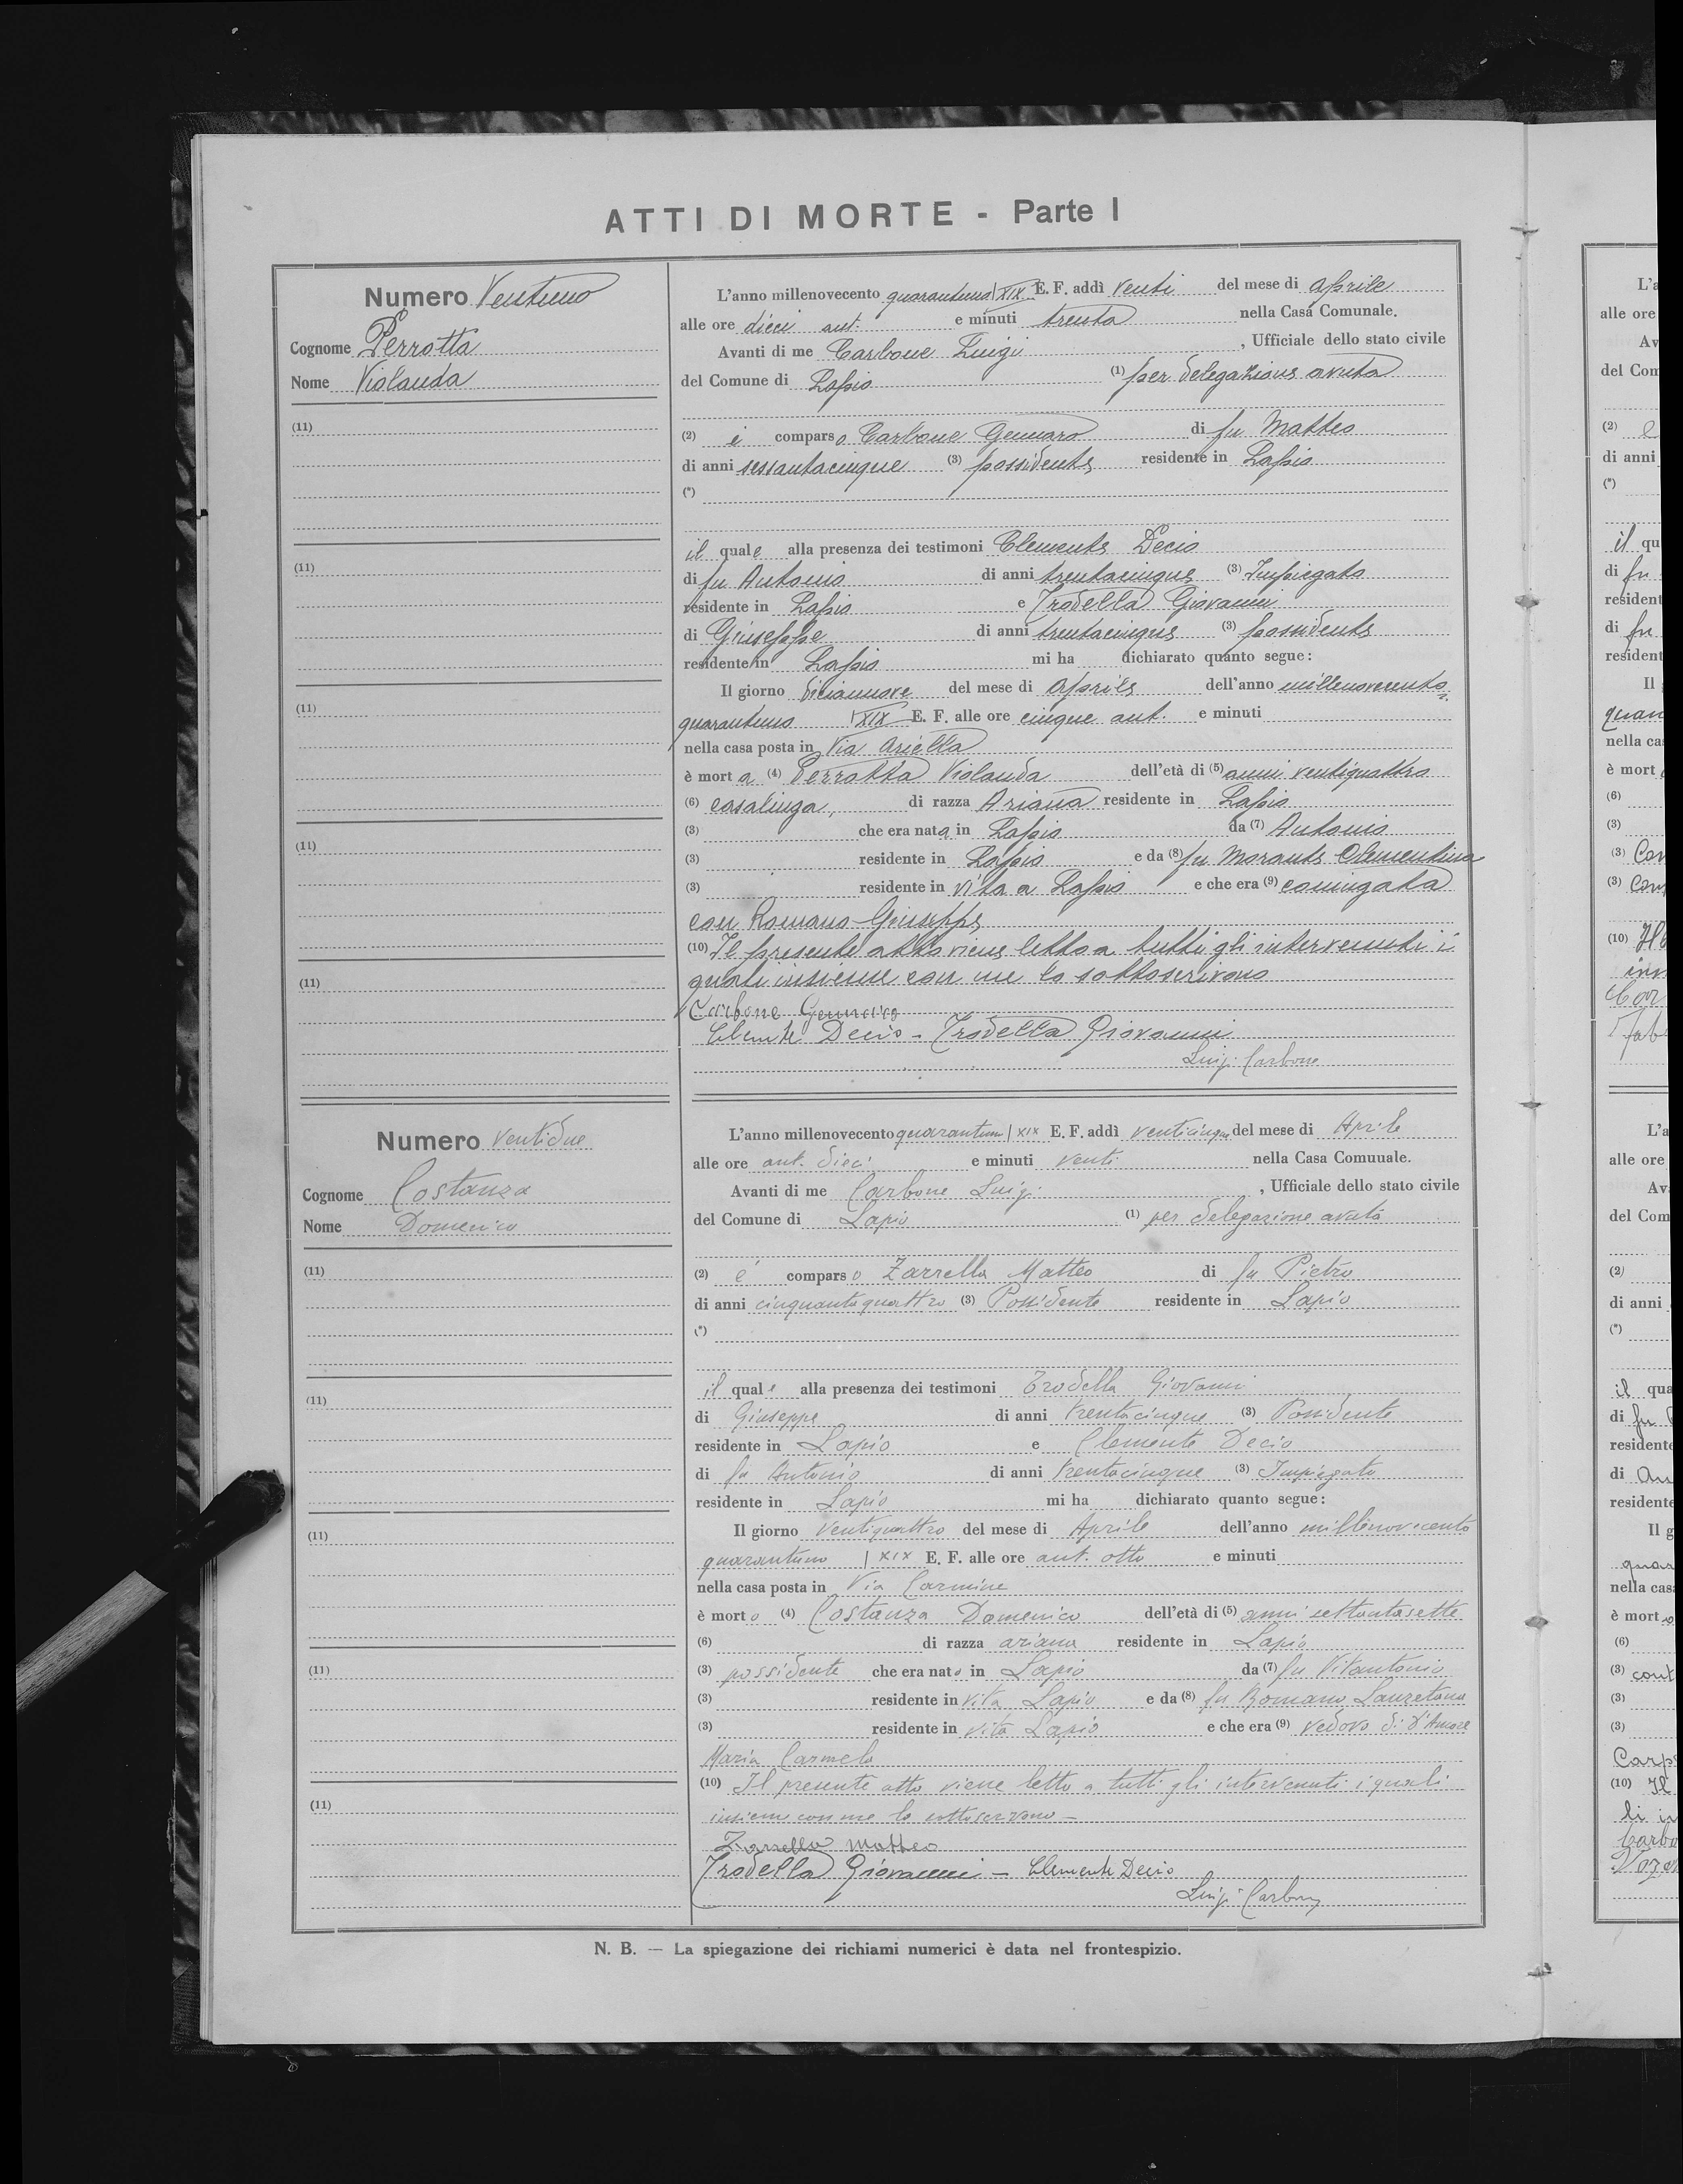 ATTI DI MORTE - Parte I
Numero Ventuno
Cognome Perrotta
Nome Violanda
(11)
(11)
(11)
(11)
(11)
L'anno millenovecento quarantuno/XIX E. F. addì venti del mese di aprile
alle ore dieci ant. e minuti trenta nella Casa Comunale.
Avanti di me Carbone Luigi, Ufficiale dello stato civile
del Comune di Lapio (1) per delegazione avuta
(2) è comparso Carbone Gennaro di fu Matteo
di anni sessantacinque (3) possidente residente in Lapio
(*)
il quale alla presenza dei testimoni Clemente Decio
di fu Antonio di anni trentacinque (3) Impiegato
residente in Lapio e Trodella Giovanni
di Giuseppe di anni trentacinque (3) possidente
residente in Lapio mi ha dichiarato quanto segue:
Il giorno diciannove del mese di aprile dell'anno millenovecento
quarantuno XIX E. F. alle ore cinque ant. e minuti
nella casa posta in Via Ariella
è morta (4) Perrotta Violanda dell'età di (5) anni ventiquattro
(6) casalinga, di razza Ariana residente in Lapio
(3) che era nata in Lapio da (7) Antonio
(3) residente in Lapio e da (8) fu Morante Clementina
(3) residente in vita a Lapio e che era (9) coniugata
con Romano Giuseppe
(10) Il presente atto viene letto a tutti gli intervenuti i
quali insieme con me lo sottoscrivono
Carbone Gennaro
Clemente Decio - Trodella Giovanni
Luigi Carbone
Numero ventidue
Cognome Costanza
Nome Domenico
(11)
(11)
(11)
(11)
(11)
L'anno millenovecento quarantuno/XIX E. F. addì venticinque del mese di Aprile
alle ore ant. dieci e minuti venti nella Casa Comuuale.
Avanti di me Carbone Luigi, Ufficiale dello stato civile
del Comune di Lapio (1) per delegazione avuta
(2) è comparso Zarrella Matteo di fu Pietro
di anni cinquantaquattro (3) Possidente residente in Lapio
(*)
il quale alla presenza dei testimoni Trodella Giovanni
di Giuseppe di anni trentacinque (3) Possidente
residente in Lapio e Clemente Decio
di fu Antonio di anni trentacinque (3) Impiegato
residente in Lapio mi ha dichiarato quanto segue:
Il giorno ventiquattro del mese di Aprile dell'anno millenovecento
quarantuno / XIX E. F. alle ore ant. otto e minuti
nella casa posta in Via Carmine
è morto (4) Costanza Domenico dell'età di (5) anni settantasette
(6) di razza ariana residente in Lapio
(3) possidente che era nato in Lapio da (7) fu Vitantonio
(3) residente in vita Lapio e da (8) fu Romano Lauretana
(3) residente in vita Lapio e che era (9) vedovo di d'Amore
Maria Carmela
(10) Il presente atto viene letto a tutti gli intervenuti i quali
insieme con me lo sottoscrivono -
Zarrella Matteo
Trodella Giovanni - Clemente Decio
Luigi Carbone
N. B. — La spiegazione dei richiami numerici è data nel frontespizio.